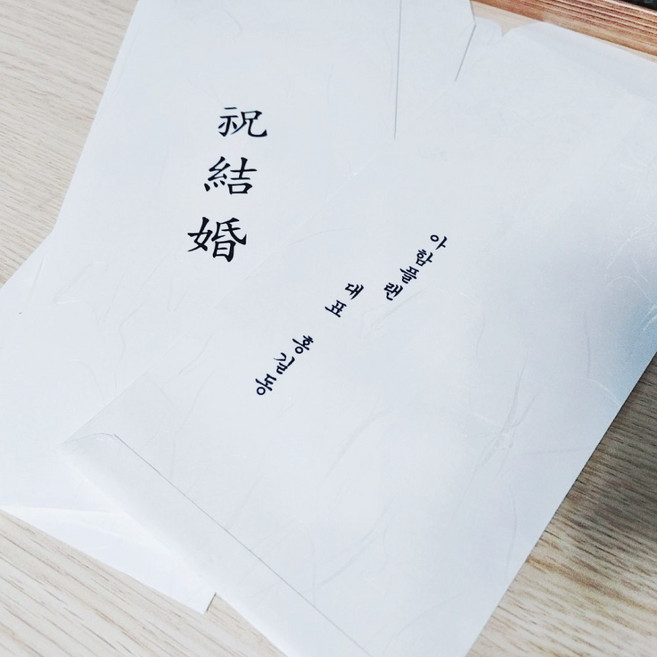 祝結婚
아함플랜
대표 홍길동